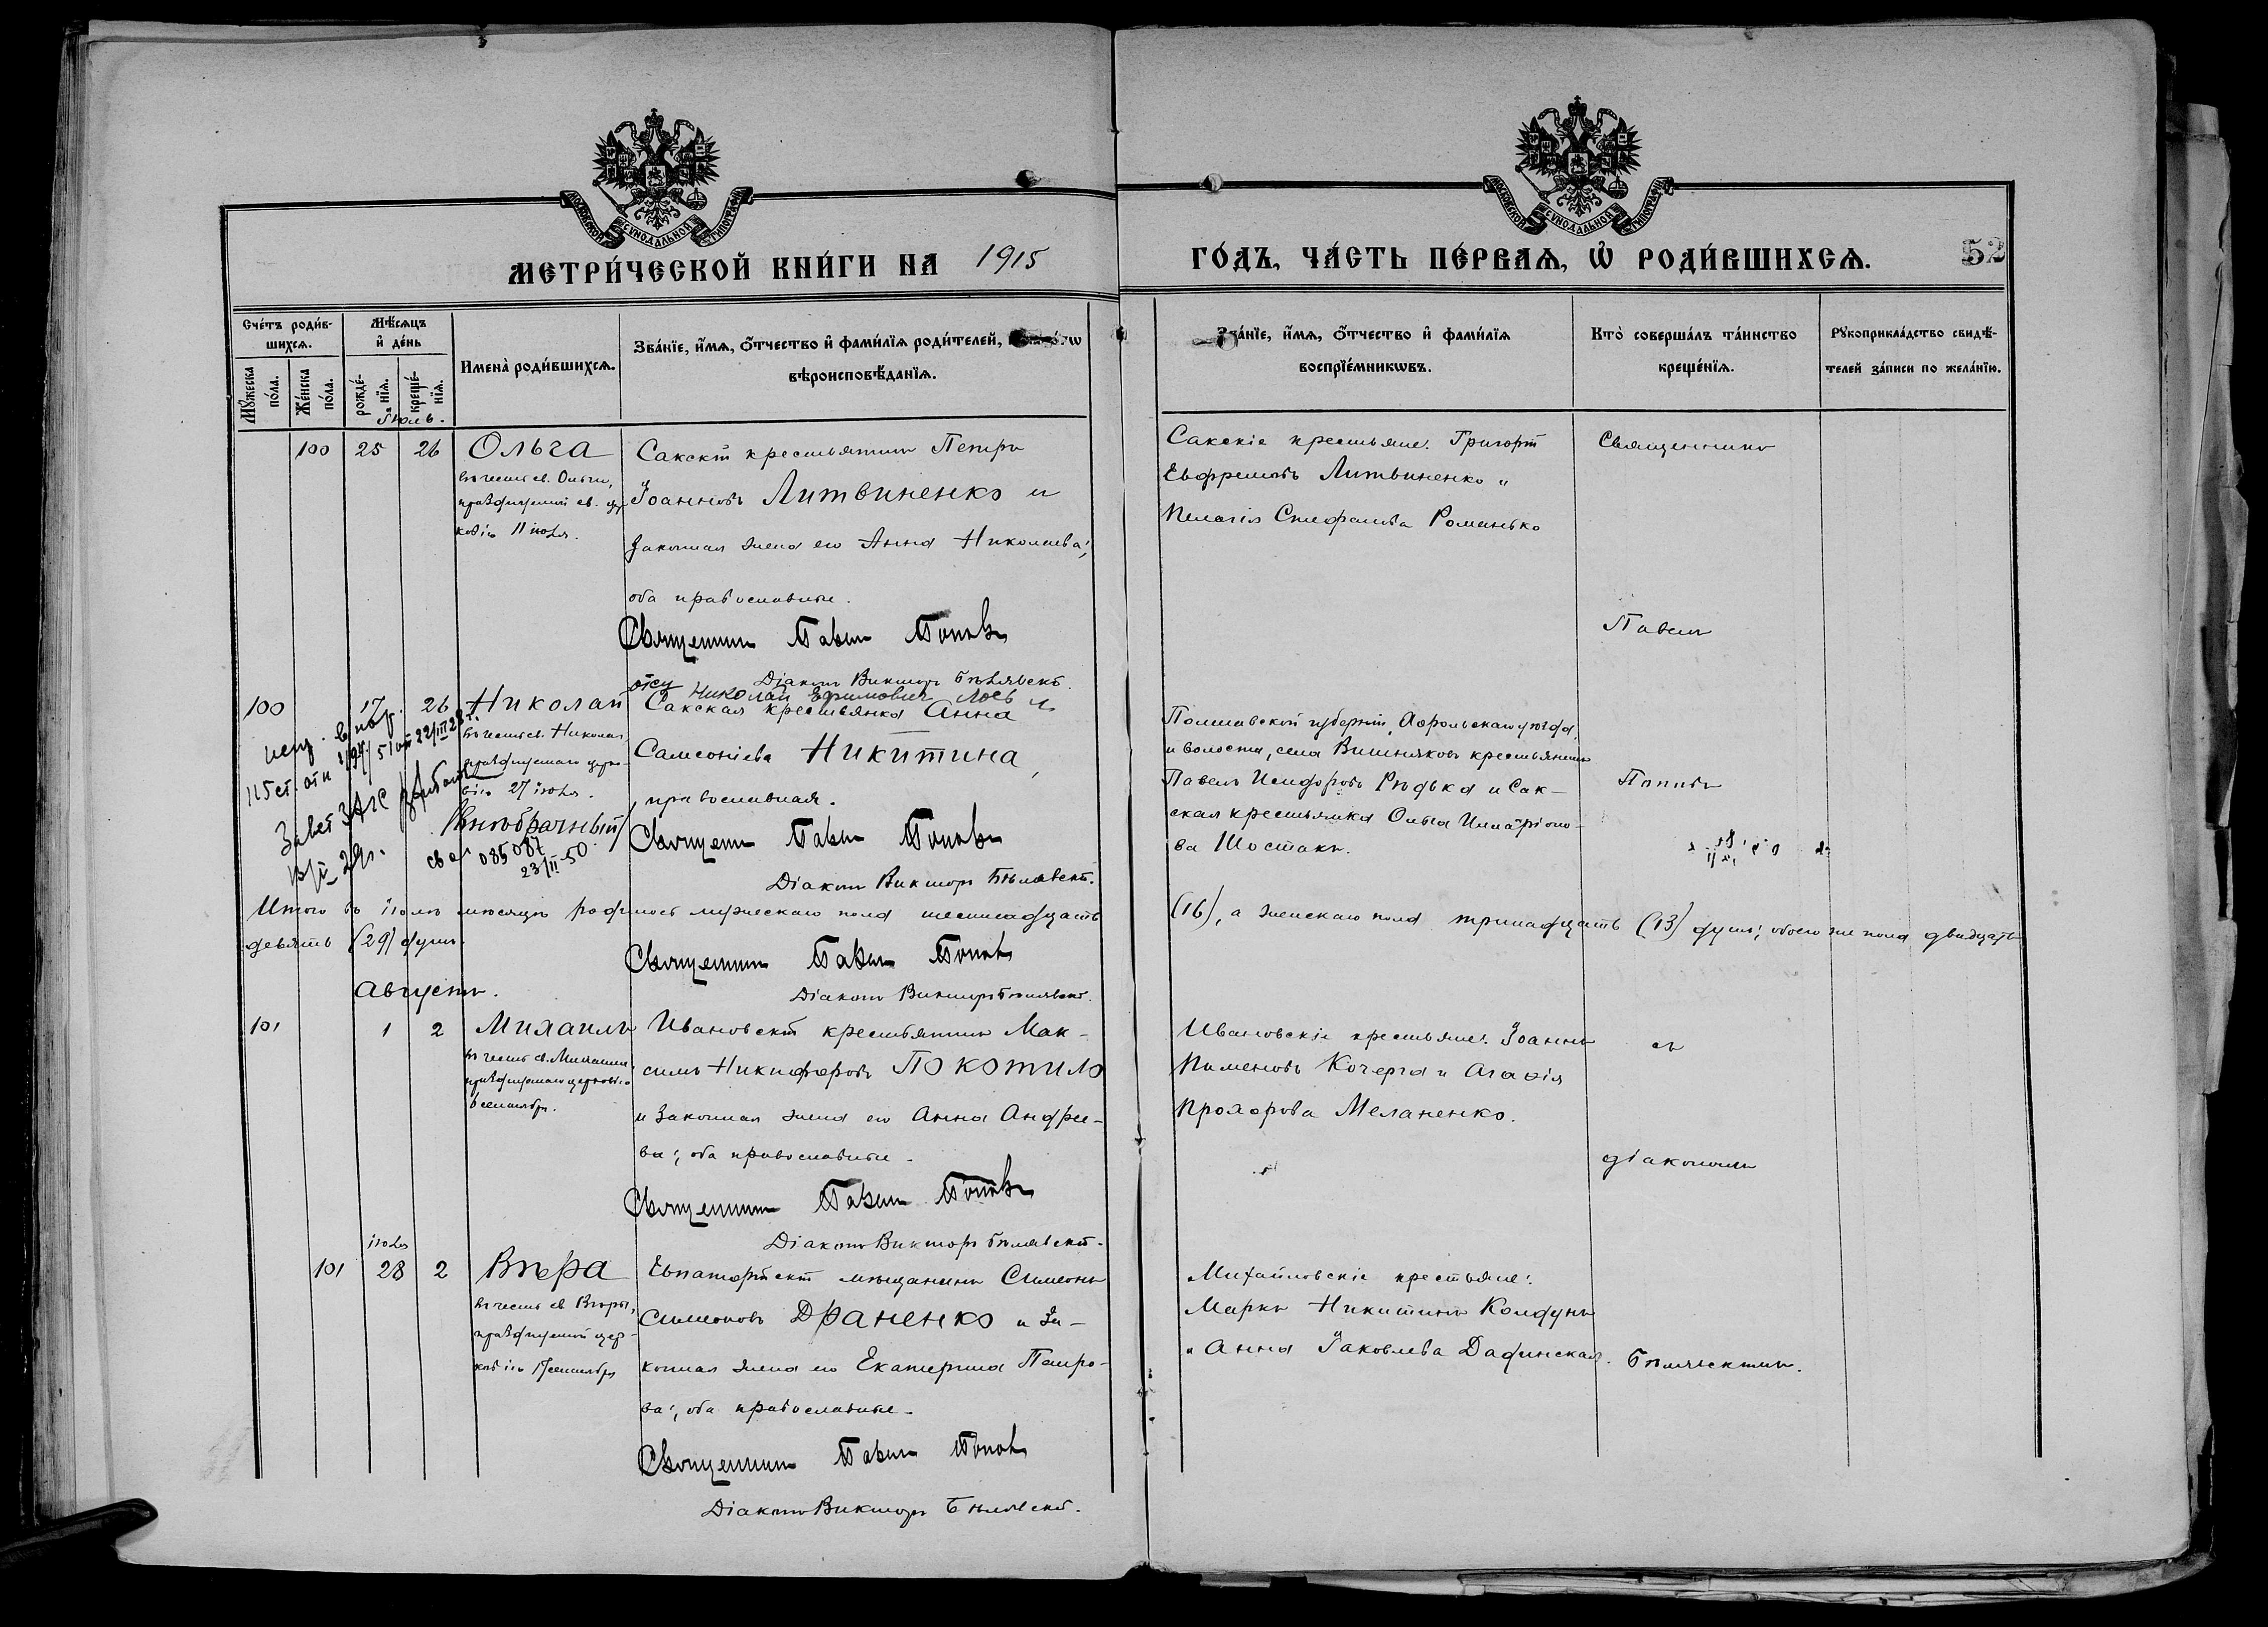 МОСКОВСКОЙ СУНОДАЛЬНОЙ ТИПОГРАФІИ
МОСКОВСКОЙ СУНОДАЛЬНОЙ ТИПОГРАФІИ
МЕТРИ́ЧЕСКОЙ КНИ́ГИ НА 1915
ГО́ДЪ, ЧА́СТЬ ПЕ́РВАѦ, Ѡ҆ РОДИ́ВШИХСѦ.
52
Сче́тъ роди́в-
шихсѧ.
Мꙋ́жеска по́ла.
Же́нска по́ла.
Мѣ́сѧцъ
и҆ де́нь
рожде́-нїѧ.
креще́-нїѧ.
Имена̀ роди́вшихсѧ.
Зва́нїе, и҆́мѧ, ѻ҆́тчество и҆ фами́лїѧ роди́телей,
вѣроисповѣ́данїѧ.
Зва́нїе, и҆́мѧ, ѻ҆́тчество и҆ фами́лїѧ
воспрїе́мникѡвъ.
Кто̀ соверша́лъ та́инство
креще́нїѧ.
Рꙋкоприкла́дство свидѣ́-
телей за́писи по жела́нїю.
Іюль.
100 25 26 Ольга
въ честь св. Ольги,
празднуемой св. цер
ковію 11 іюля.
Сакскій крестьянинъ Петръ
Іоанновъ Литвиненко и
законная жена его Анна Николаева;
оба православные.
Священникъ Павелъ Поповъ
Діаконъ Викторъ Бѣлявскій.
Сакскіе крестьяне: Григорій
Евфремовъ Литвиненко и
Пелагія Стефанова Романько
Священникъ
Павелъ
100 17 26 Николай
въ честь св. Николая,
празднуемаго церко-
вію 27 іюля.
(Внѣбрачный)
отец Николай Ефимович Лось и
Сакская крестьянка Анна
Самсоніева Никитина,
православная.
Священникъ Павелъ Поповъ
Діаконъ Викторъ Бѣлявскій.
115 ст. 22/III 28 г.
Завет ЗАГС
св 085087
23/II-50.
Полтавской губерніи, Хорольскаго уѣзда
и волости, села Вишняковъ крестьянинъ
Павелъ Исидоровъ Рѣдька и Сак-
ская крестьянка Ольга Илларіоно-
ва Шостакъ.
Поповъ
Итого въ іюлѣ мѣсяцѣ родилось мужескаго пола шестнадцать (16), а женскаго пола тринадцать (13) душъ; обоего же пола двадцать
девять (29) душъ.
Священникъ Павелъ Поповъ
Діаконъ Викторъ Бѣлявскій.
Августъ.
101 1 2 Михаилъ
въ честь св. Михаила,
празднуемаго церковію
6 сентября.
Ивановскій крестьянинъ Мак-
симъ Никифоровъ Покотило
и законная жена его Анна Андрее-
ва; оба православные.
Священникъ Павелъ Поповъ
Діаконъ Викторъ Бѣлявскій.
Ивановскіе крестьяне: Іоаннъ
Пименовъ Кочерга и Агафія
Прохорова Меланенко.
съ
діакономъ
іюля
101 28 2 Вѣра
въ честь св. Вѣры,
празднуемой цер-
ковію 17 сентября
Евпаторійскій мѣщанинъ Симеонъ
Симеоновъ Драненко и за-
конная жена его Екатерина Петро-
ва; оба православные.
Священникъ Павелъ Поповъ
Діаконъ Викторъ Бѣлявскій.
Михайловскіе крестьяне:
Маркъ Никитинъ Колдунъ
и Анна Іаковлева Дадинская.
Бѣлявскимъ.